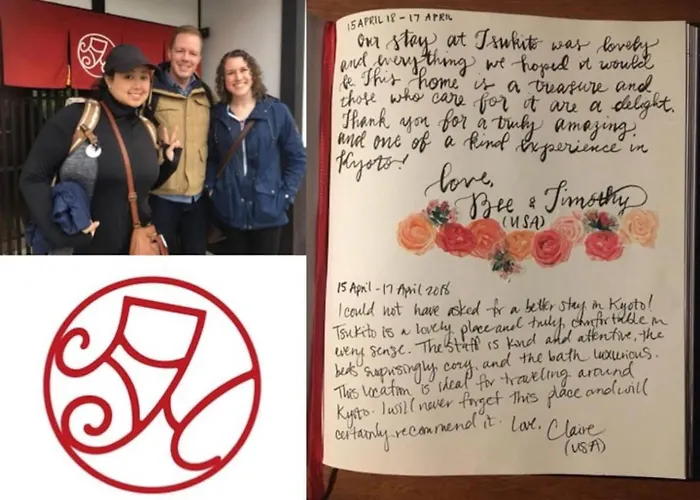 15 APRIL 18 - 17 APRIL
Our stay at Tsukito was lovely
and everything we hoped it would
be. This home is a treasure and
those who care for it are a delight.
Thank you for a truly amazing,
and one of a kind experience in
Kyoto!
love,
Bee & Timothy
(USA)
15 April - 17 April 2018
I could not have asked for a better stay in Kyoto!
Tsukito is a lovely place and truly comfortable in
every sense. The staff is kind and attentive, the
beds surprisingly cozy, and the bath luxurious.
This location is ideal for traveling around
Kyoto. I will never forget this place and will
certainly recommend it. Love, Claire
(USA)